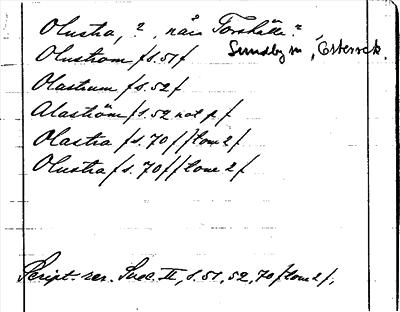 Olustra, ?, när Forshälla?
Sundby sn, Österrek.
Olustrom f s. 51 f
Olastrum f s. 52 f
Alaström f s. 52 not p f
Olastra f s. 70 f f tom 2 f
Olustra f s. 70 f f tom 2 f
Script. rer. Suec. II, s. 51, 52, 70 f tom 2 f,